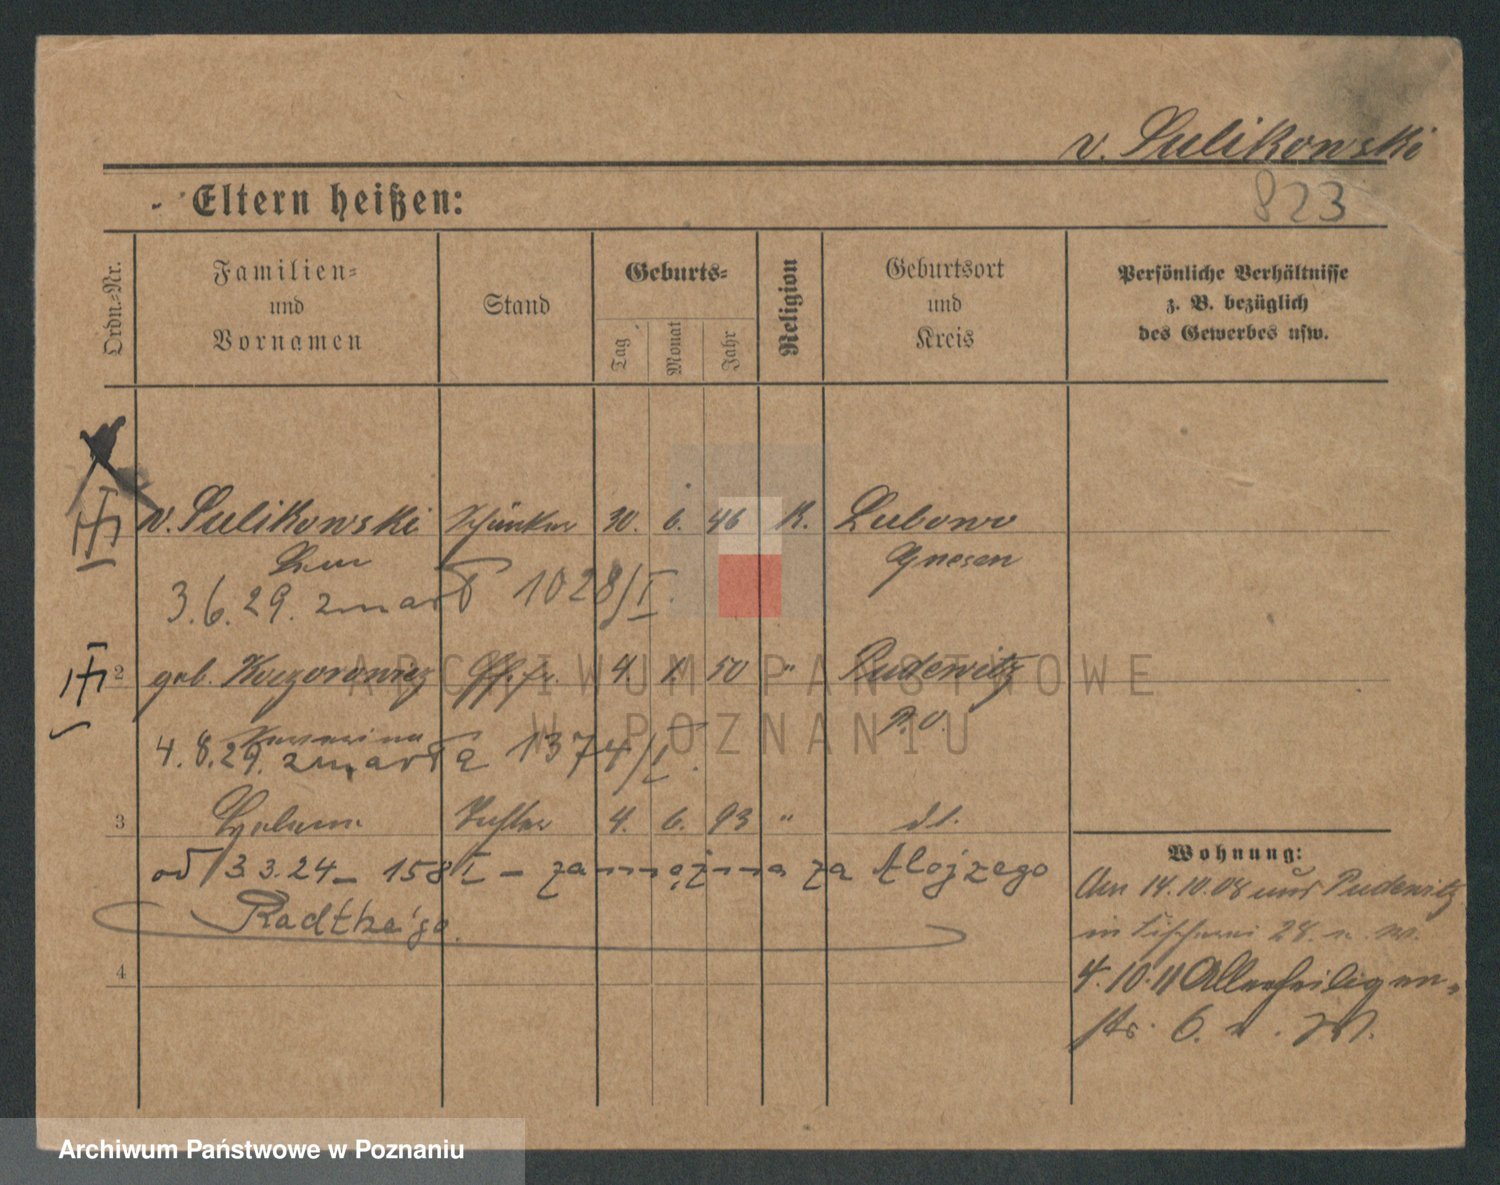 v. Sulikowski
823
Eltern heißen:
Ordn.-Nr.
Familien-
und
Vornamen
Stand
Geburts-
Tag
Monat
Jahr
Religion
Geburtsort
und
Kreis
Persönliche Verhältnisse
z. B. bezüglich
des Gewerbes usw.
v. Sulikowski 30. 6. 46 K. Lubowo
Leo Gnesen
3.6.29. zmarł 1028/I.
2 geb. Kaczorowicz 4. 1. 50 " Pudewitz
P. O.
4.8.29. zmarła 1374/I.
3 Helena 4. 6. 93 " dt.
od 3.3.24 – 158/I – zamężna za Alojzego
Radtke'go.
4
Wohnung:
Am 14.10.08 aus Pudewitz
in Tischerei 28. n. W.
4.10.11 Allerheiligen-
str. 6. n. W.
ARCHIWUM PAŃSTWOWE
W POZNANIU
Archiwum Państwowe w Poznaniu